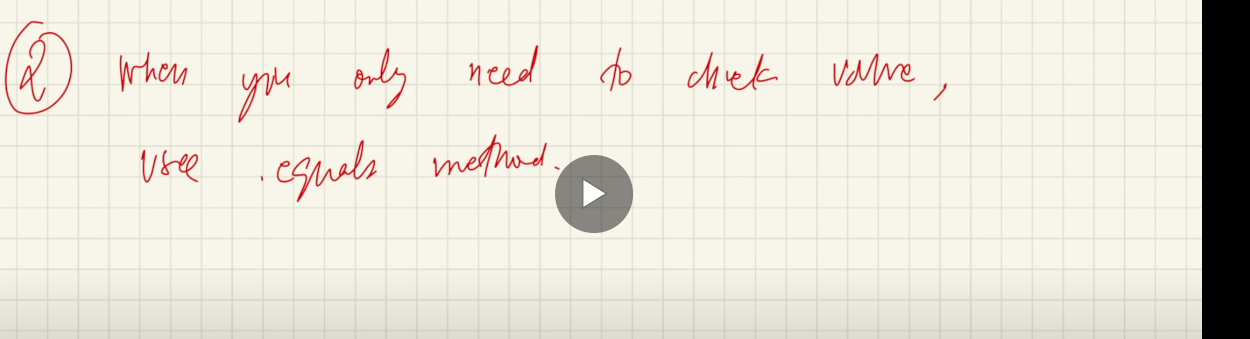 ② When you only need to check value,
use .equals method.